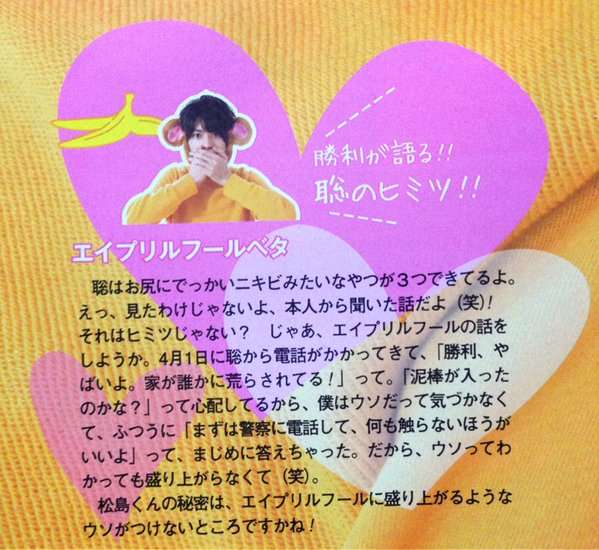 勝利が語る!!
聡のヒミツ!!
エイプリルフールベタ
聡はお尻にでっかいニキビみたいなやつが３つできてるよ。
えっ、見たわけじゃないよ、本人から聞いた話だよ（笑）!
それはヒミツじゃない？　じゃあ、エイプリルフールの話を
しようか。4月1日に聡から電話がかかってきて、「勝利、や
ばいよ。家が誰かに荒らされてる！」って。「泥棒が入った
のかな？」って心配してるから、僕はウソだって気づかなく
て、ふつうに「まずは警察に電話して、何も触らないほうが
いいよ」って、まじめに答えちゃった。だから、ウソってわ
かっても盛り上がらなくて（笑）。
松島くんの秘密は、エイプリルフールに盛り上がるような
ウソがつけないところですかね！